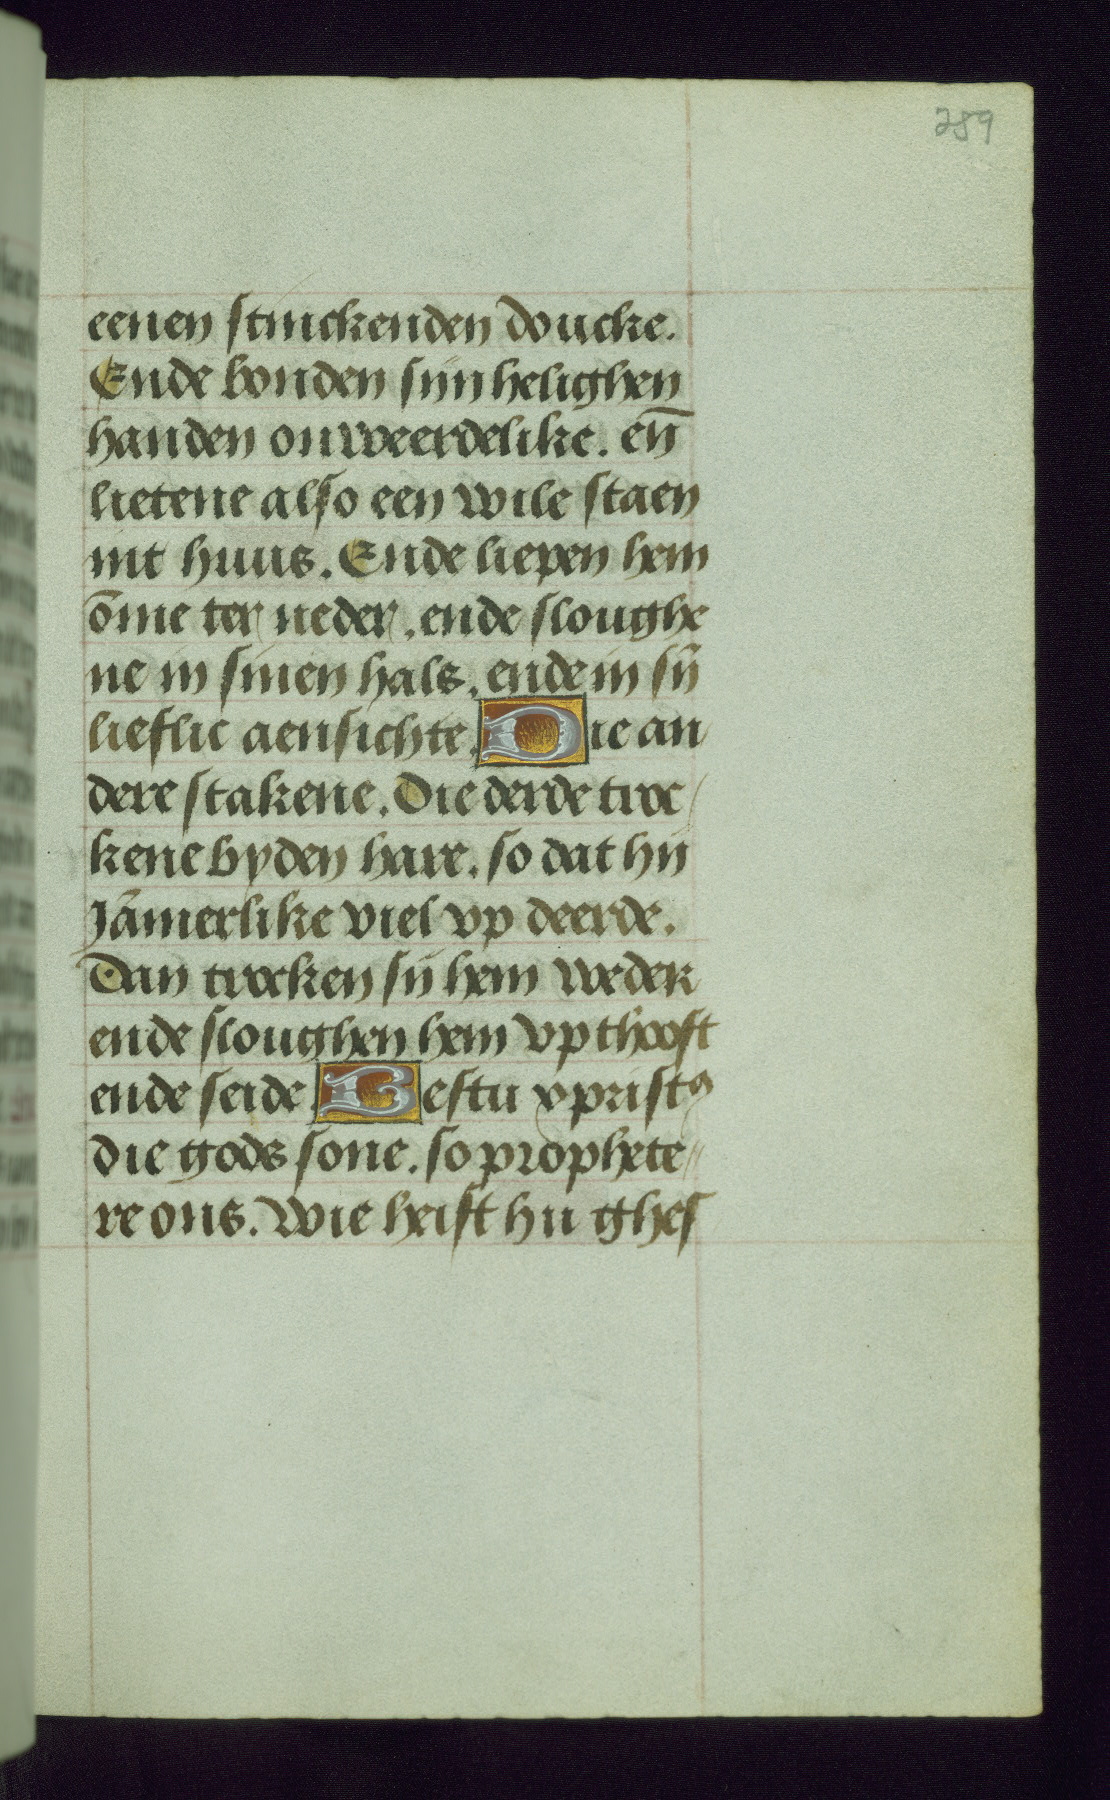 289
eenen stinckenden doucke.
Ende bonden sijn helighen
handen onweerdelike. en̄
lietene also een wile staen
int huus. Ende liepen hem
ōme ter neder. ende sloughe
ne in sinen hals. ende in sij̄
lieflic aensichte. Die an
dere stakene. Die derde troc
kene byden hare. so dat hij
Jāmerlike viel vp deerde.
Dan trocken sij hem weder
ende sloughen hem vp thooft
ende seide. Bestu xpristꝰ
die gods sone. so prophete
re ons. Wie heift hu ghes